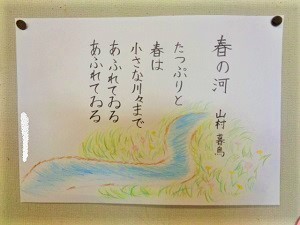 春の河 山村暮鳥
たっぷりと
春は
小さな川々まで
あふれてゐる
あふれてゐる